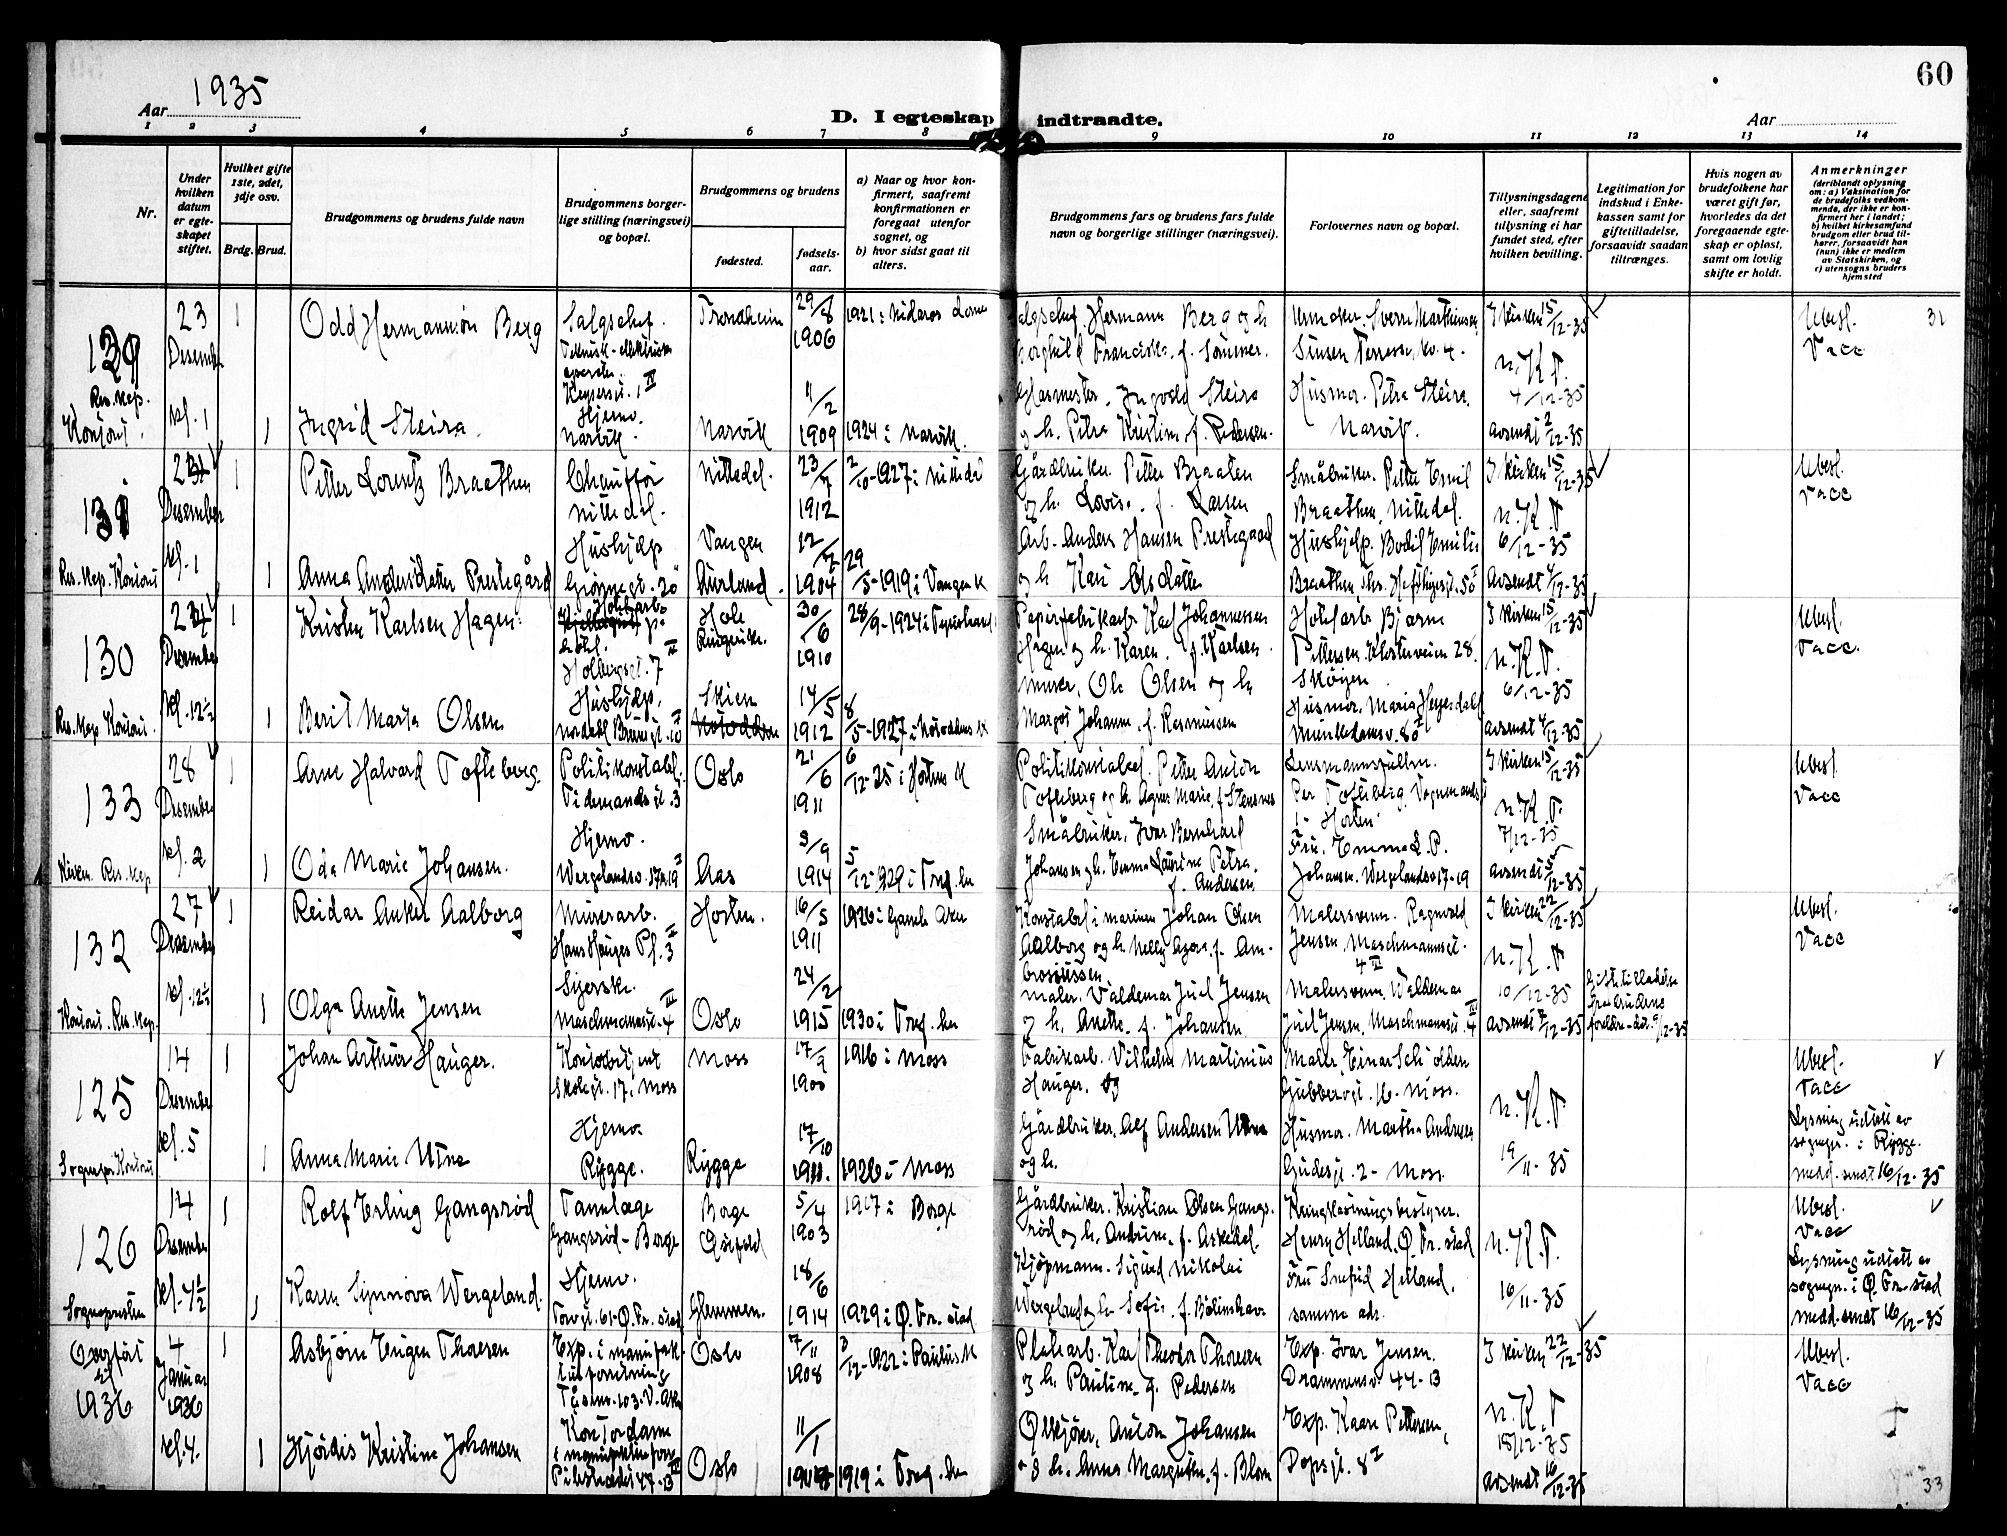 60
Aar 1935
D. I egteskap indtraadte.
Aar
1 2 3 4 5 6 7 8 9 10 11 12 13 14
Nr.
Under hvilken datum er egteskapet stiftet.
Hvilket gifte 1ste, 2det, 3dje osv.
Brdg. Brud.
Brudgommens og brudens fulde navn
Brudgommens borgerlige stilling (næringsvei) og bopæl.
Brudgommens og brudens
fødested.
fødselsaar.
a) Naar og hvor konfirmert, saafremt konfirmationen er foregaat utenfor sognet, og
b) hvor sidst gaat til alters.
Brudgommens fars og brudens fars fulde navn og borgerlige stillinger (næringsvei).
Forlovernes navn og bopæl.
Tillysningsdagene eller, saafremt tillysning ei har fundet sted, efter hvilken bevilling.
Legitimation for indskud i Enkekassen samt for giftetilladelse, forsaavidt saadan tiltrænges.
Hvis nogen av brudefolkene har været gift før, hvorledes da det foregaaende egteskap er opløst, samt om lovlig skifte er holdt.
Anmerkninger
(deriblandt oplysning om: a) Vaksination for de brudefolks vedkommende, der ikke er konfirmert her i landet;
b) hvilket kirkesamfund brudgom eller brud tilhører, forsaavidt han (hun) ikke er medlem av Statskirken, og
c) utensogns bruders hjemsted
129 Res. kap. Kontoret.
23 Desember kl. 1
1 Odd Hermannsøn Berg
Salgschef. Teknisk-elektriske Keysersgt. 1 II
Trondheim
29/8 1906
1921 i Nidaros dome
Salgschef Hermann Berg og h
Borghild Franciska f. Sommer.
Sverre Marthinsen, Sinsen Terrasse, kv. 4.
I kirken 15/12-35
n. K. P. 4/12-35
Ubesl. Vacc
31
1 Ingrid Steira.
Hjemv. Narvik.
Narvik
11/2 1909
1924 i Narvik.
Ingvald Steira
og h. Petra Kristine f. Pedersen.
Husmor. Petra Steira, Narvik.
avsendt 2/12-35
131 Res. kap. Kontoret
Desember kl. 1
1 Petter Lorentz Braathen
Chauffør Nittedal.
Nittedal.
23/7 1912
2/10-1927 i Nittedal
Gårdbruker. Petter Braaten
og h. Lovise f. Larsen
Småbruker. Petter Emil Braathen, Nittedal.
I kirken 15/12-35
n. K. P. 6/12-35
Ubesl. Vacc
1 Anna Andersdatter Prestegård
Hushjelp
Vangen Aurland.
1904
29/5-1919 i Vangen K
Arb. Anders Hansen Prestegaard
og h Kari Olsdatter
Hushjelp. Bodil Emilie
avsendt 4/12-35
130 Res. kap. Kontoret.
Desember kl. 12½
1 Kristen Karlsen Hagen.
Holbergsgt. 7 II
Hole Ringerike.
30/6 1910
28/9-1924 i
Papirfabrikarb Karl Johannessen
Hagen og h. Karen f. Karlsen.
Bjarne Pettersen, Klosterveien 28. Skøyen
I kirken 15/12-35
n. K. P. 6/12-35
Ubesl. Vacc.
1 Berit Marta Olsen
Hushjelp.
Skien
14/5 1912
8/5-1927 i Notoddens K
Murer, Ole Olsen og h
Margot Johanne f. Rasmussen
Husmor. Maria Munkedamsv. 80
avsendt 4/12-35
133 Kirken. Res. kap
28 Desember kl. 2
1 Arne Halvard Tofteberg.
Politikonstabel. Tidemandsgt. 3
Oslo
21/6 1911
6/12-25 i Horten K
Politikonstabel. Petter Anton
Tofteberg og h. Agnes Marie f. Stensnes
Lensmannsfullm. Per Tofteberg, Horten
I kirken 15/12-35
n. K. P. 7/12-35
Ubesl. Vacc
1 Oda Marie Johansen.
Hjemv. Wergelandsv. 17-19
Aas
3/9 1914
5/12-1929 i Tref. ku
Småbruker. Ivar Bernhard
Johansen og h. Emma Laurine Petra f. Andersen
Fru. Emma L. P. Johansen. Wergelandsv 17-19
avsendt /12-35
132 Kontoret. Res. kap.
27 Desember kl. 12½
1 Reidar Anker Aalborg
Murerarb. Hans Hauges Pl. 3 II
Horten.
16/5 1911
1926 i Gamle Aker
Konstabel i marinen Johan Olsen
Aalborg og h Nelly Agora f. Ambrosiussen
Malersvenn. Ragnvald Jensen, Maschmannsgt. 4 II
I kirken 22/12-35
n. K. P. 10/12-35
Giftetilladelse fra brudens foreldre
Ubesl. Vacc
1 Olga Anette Jensen
Syerske Maschmannsgt. 4 III
Oslo
24/2 1915
1930 i Tref. ku
Maler. Valdemar Juel Jensen
og h. Anette f. Johansen
Malersvenn. Valdemar Juel Jensen, Maschmannsgt. 4 III
avsendt 9/12-35
125 Sognepr. Kontoret
14 Desember kl. 5
1 Johan Arthur Hauger.
Kontorbetjent Skolegt. 17, Moss
Moss
17/9 1900
1916 i Moss
Fabrikarb. Vilhelm Martinius
Hauger. og
Maler, Einar Schjolden
Gubbergt. 16. Moss.
n. K. P. 19/11-35
Ubesl. Vacc
Lysning utstedt av sognepr. i Rygge. medd. sendt 16/12-35
1 Anna Marie Utne
Hjemv. Rygge.
Rygge
17/10 1911.
1926 i Moss
Gårdbruker. Alf Andersen Utne
og h.
Husmor. Martha Andresen
Gudesgt. 2 - Moss.
126 Sognepresten
14 Desember kl. 4½
1 Rolf Erling Gangsrød
Tannlæge Gangsrød - Borge
Borge Østfold
5/4 1903
1917 i Borge
Gårdbruker. Kristian Olsen Gangsrød og h. Andrine f. Askedal.
Henry Helland, Ø. Fr. stad
n. K. P. 16/11-35
Ubesl. Vacc
Lysning utstedt av sognepr. i Ø. Fr. stad medd. sendt 16/12-35
1 Karen Synnøva Wergeland.
Hjemv. Torvgt. 61-Ø. Fr. stad
Glemmen.
18/6 1914
1929 i Ø. Fr. stad
Kjøpmann. Sigurd Nikolai
Wergeland og h. Sofie f.
Fru Snefrid Helland, samme adr.
Overført til 1936
4 Januar 1936 kl. 4.
1 Asbjørn Eugen Thoresen
Exp. i manufakturforretning Tåsenv. 103. V. Aker
Oslo
7/11 1908
3/12-1922 i Paulus K
Platearb. Karl Theodor Thoresen
og h. Pauline f. Pedersen
Exp. Ivar Jensen. Drammensv. 44-B
I kirken 22/12-35
n. K. P. 18/12-35
Ubesl. Vacc
1 Hjørdis Kristine Johansen
Kontordame i manufakturforr. Pilestredet 47-B III
Oslo
11/1
1919 i Tref. ku
Ølkjører, Anton Johansen
og h. Anna Margrethe f. Blom
Exp. Kaare Pettersen, Dopsgt. 8
avsendt 16/12-35
33